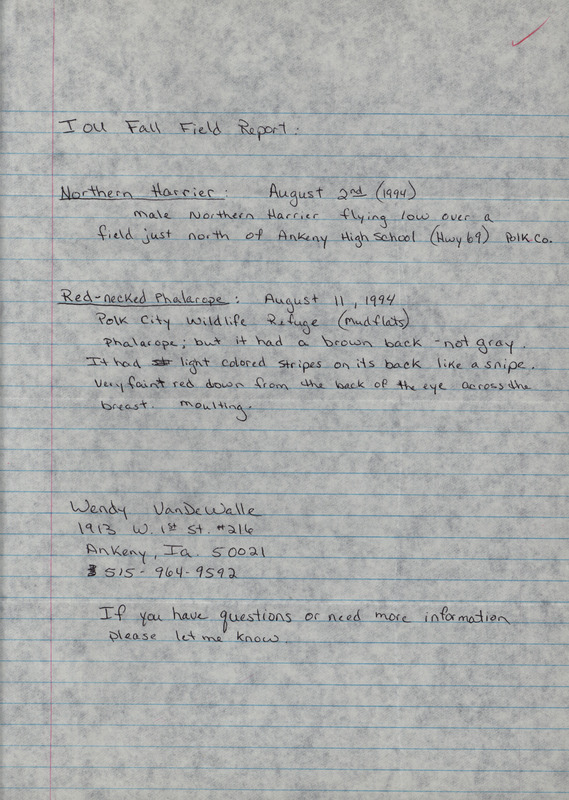 IOU Fall Field Report:
Northern Harrier: August 2nd (1994)
male Northern Harrier flying low over a
field just north of Ankeny High School (Hwy 69) Polk Co.
Red-necked Phalarope: August 11, 1994
Polk City Wildlife Refuge (mudflats)
Phalarope; but it had a brown back - not gray.
It had light colored stripes on its back like a snipe.
Very faint red down from the back of the eye across the
breast. moulting.
Wendy VanDeWalle
1913 W. 1st St. #216
Ankeny, Ia. 50021
515-964-9592
If you have questions or need more information
please let me know.